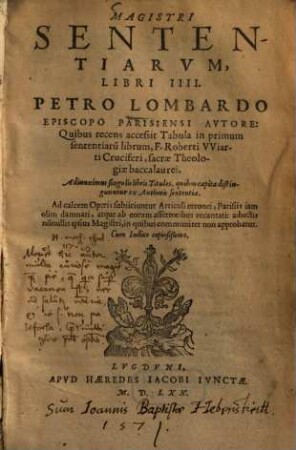 MAGISTRI
SENTEN-
TIARVM,
LIBRI IIII.
PETRO LOMBARDO
EPISCOPO PARISIENSI AVTORE:
Quibus recens accessit Tabula in primum
sententiarũ librum, F. Roberti VViar-
ti Cruciferi, sacræ Theolo-
giæ baccalaurei.
Adiunximus singulis libris Titulos, quibus capita disting-
uuntur ex Authoris sententia.
Ad calcem Operis subiiciuntur Articuli erronei, Parisiis iam
olim damnati, atque ab eorum assertoribus recantati: adiectis
nonnullis ipsius Magistri, in quibus communiter non approbatur.
Cum Indice copiosissimo.
LVGDVNI,
APVD HÆREDES IACOBI IVNCTÆ.
M. D. LXX.
Sum Ioannis Baptistæ
1571.